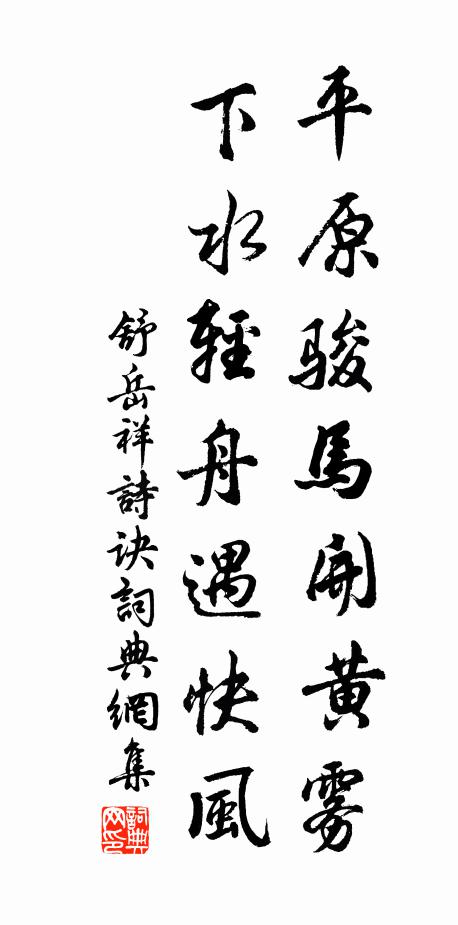 平原駿馬開黄霧
下水輕舟遇快風
舒岳祥詩訣詞典網集
詞典網印